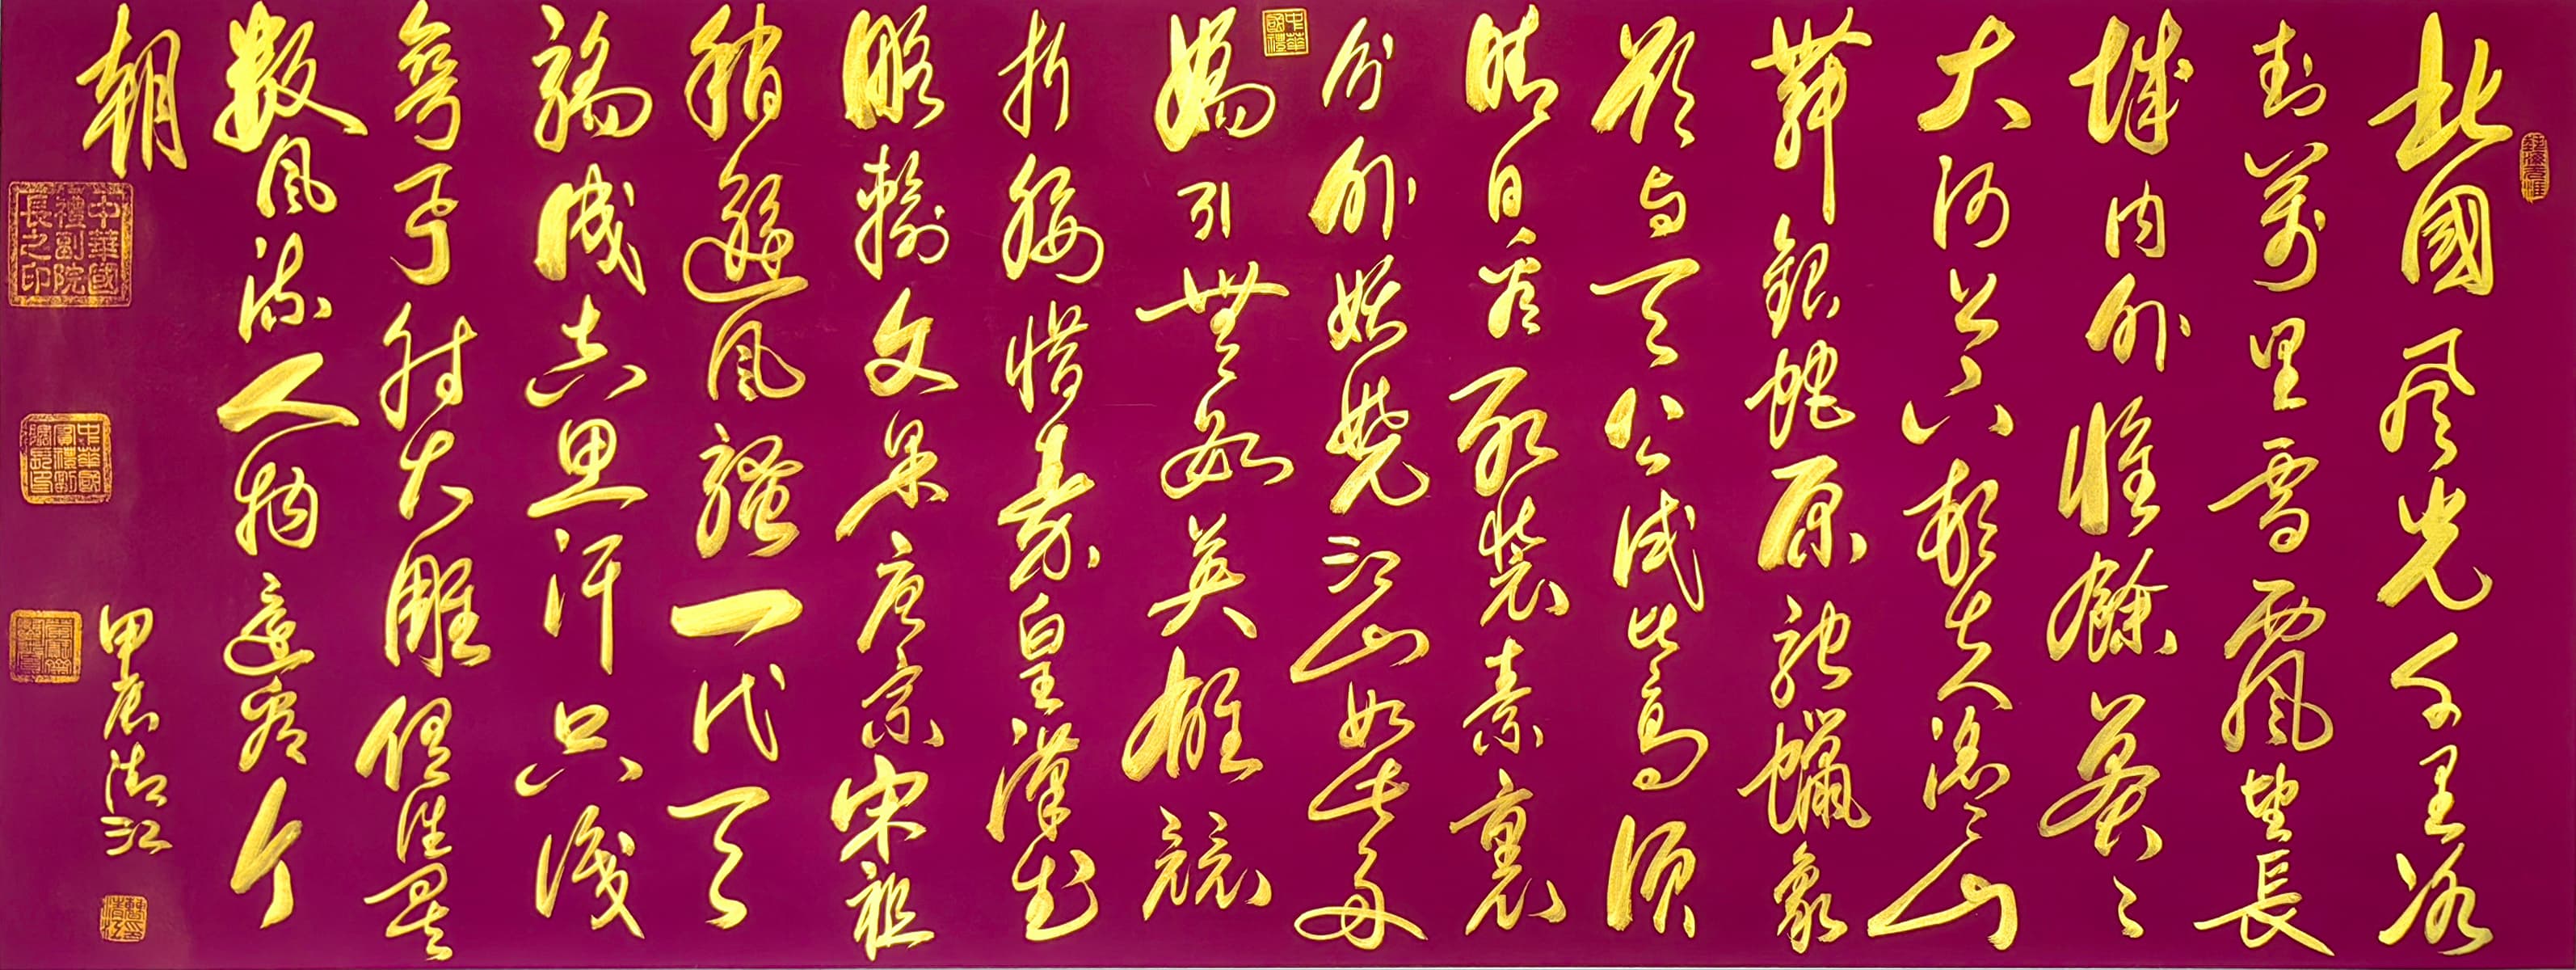 北國風光千里冰
封萬里雪飄望長
城內外惟餘莽々
大河上下頓失滔々山
舞銀蛇原馳蠟象
欲與天公試比高須
晴日看紅裝素裹
分外妖嬈江山如此多
嬌引無數英雄競
折腰惜秦皇漢武
略輸文采唐宗宋祖
稍遜風騷一代天
驕成吉思汗只識
彎弓射大雕俱往矣
數風流人物還看今
朝
甲辰清江
中華國禮
中華國禮副院長之印